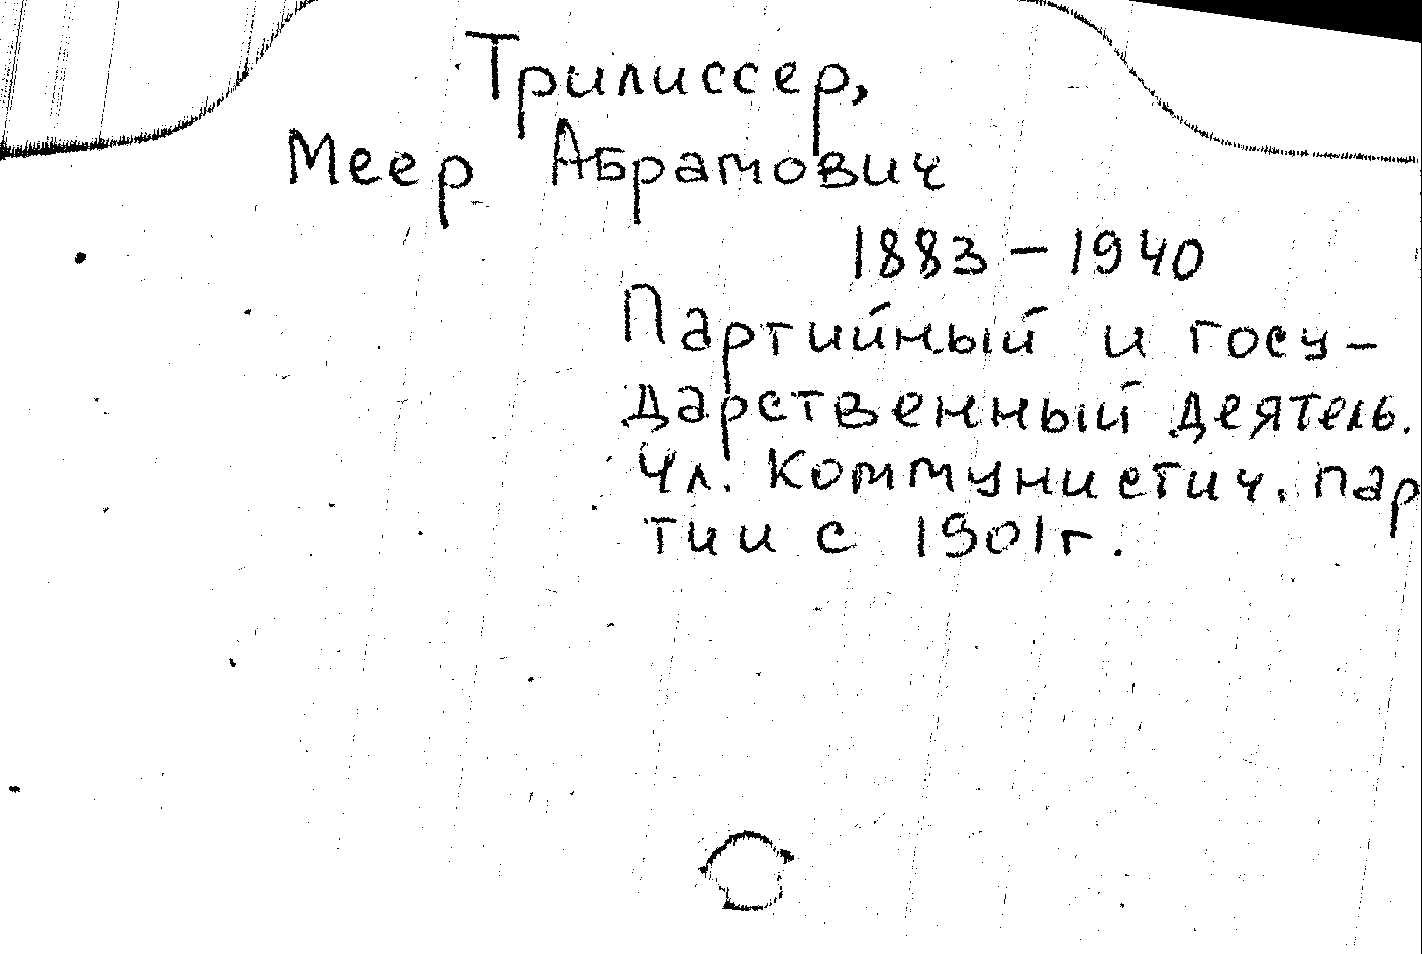 Трилиссер,
Меер Абрамович
1883 – 1940
Партийный и госу-
дарственный деятель.
Чл. Коммунистич. пар
тии с 1901г.